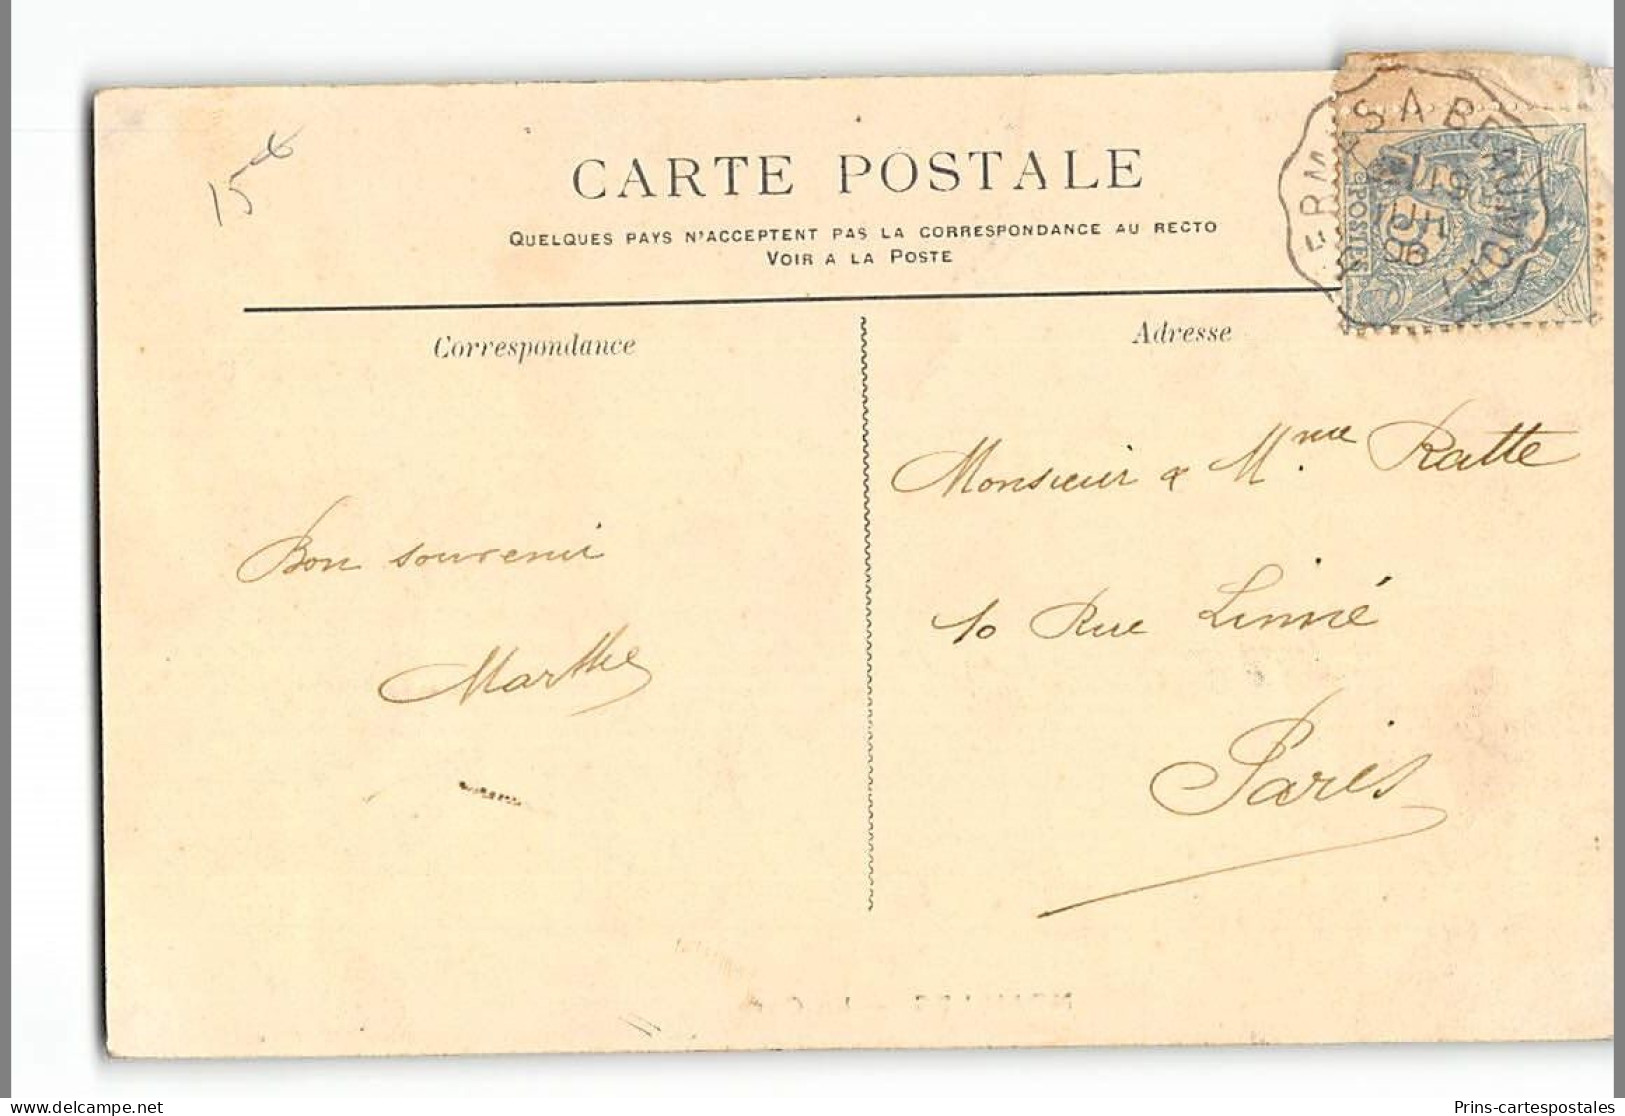 15€
CARTE POSTALE
QUELQUES PAYS N'ACCEPTENT PAS LA CORRESPONDANCE AU RECTO
VOIR A LA POSTE
HERMES A BEAUMONT
POSTES
Correspondance
Adresse
Bon souvenir
Marthe
Monsieur & Mme Ratte
10 Rue Linné
Paris
delcampe.net
Prins-cartespostales